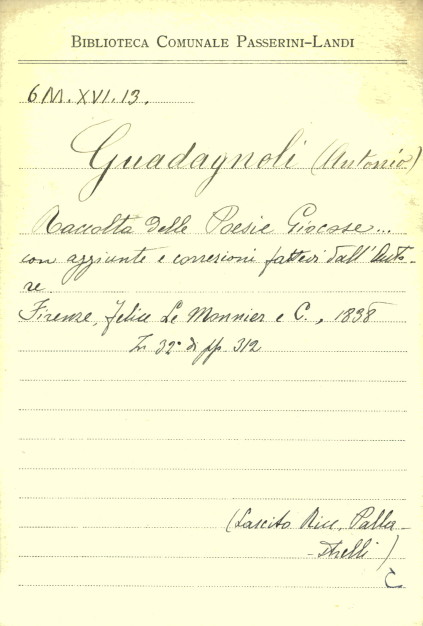 BIBLIOTECA COMUNALE PASSERINI-LANDI
6 M. XVI. 13.
Guadagnoli (Antonio)
Raccolta delle Poesie Giocose...
con aggiunte e correzioni fattevi dall'Auto-
re.
Firenze, Felice Le Monnier e C., 1838
In 32° di pp. 312
(Lascito Ricc. Palla-
strelli)
C